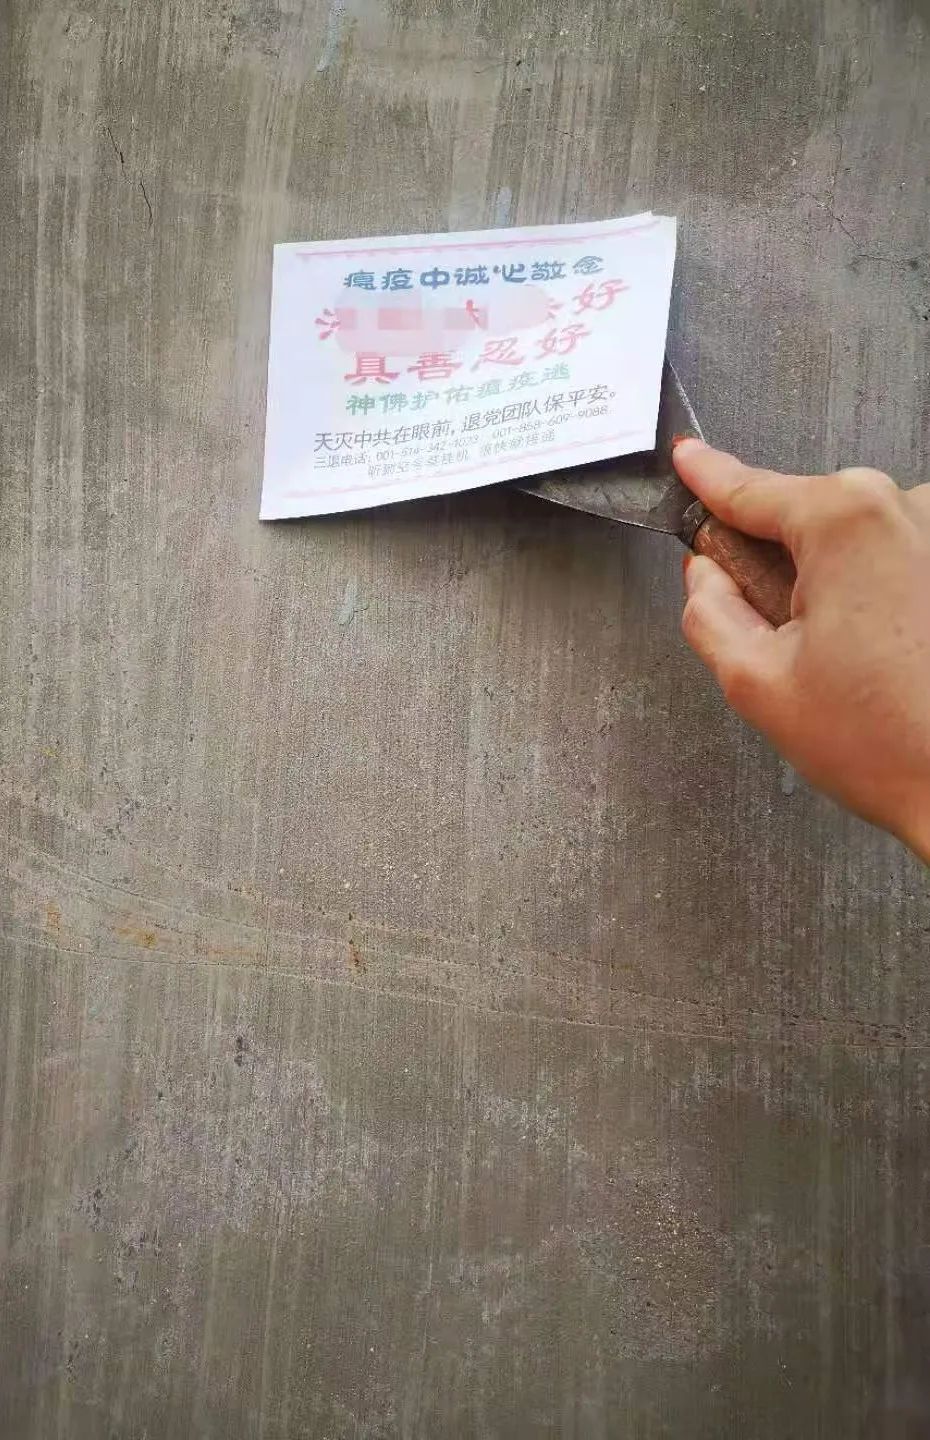 瘟疫中诚心敬念
好
真善忍好
神佛护佑瘟疫逃
天灭中共在眼前,退党团队保平安。
三退电话:001-514-342-1023 001-868-609-9088